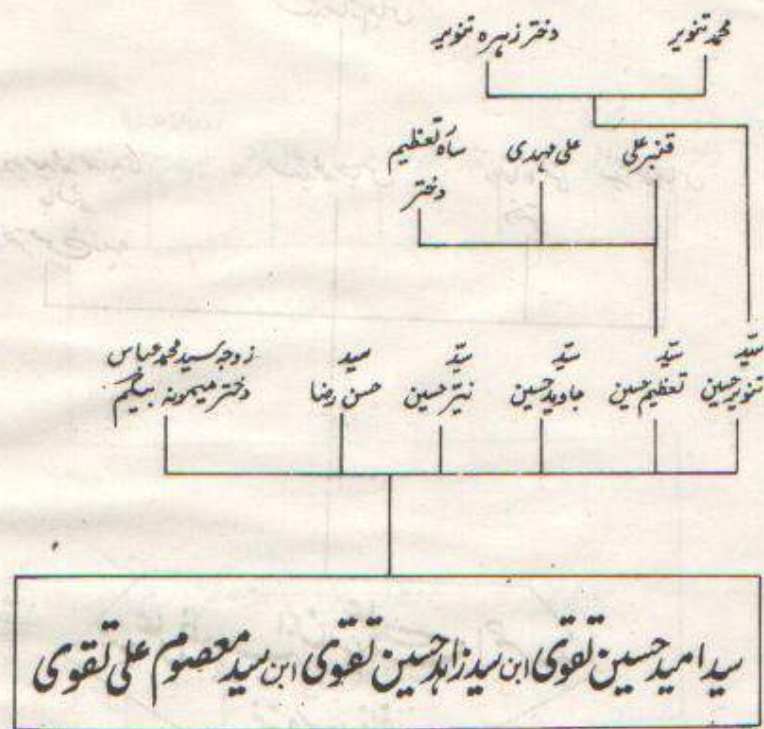 محمد تنویر
دختر زہرہ تنویر
قنبر علی
علی مہدی
سارہ تعظیم
دختر
سیّد
تنویر حسین
سیّد
تعظیم حسین
سیّد
جاوید حسین
سیّد
نیّر حسین
سید
حسن رضا
زوجہ سید محمد عباس
دختر میمونہ بیگم
سید امید حسین تقوی ابن سید زاہد حسین تقوی ابن سید معصوم علی تقوی